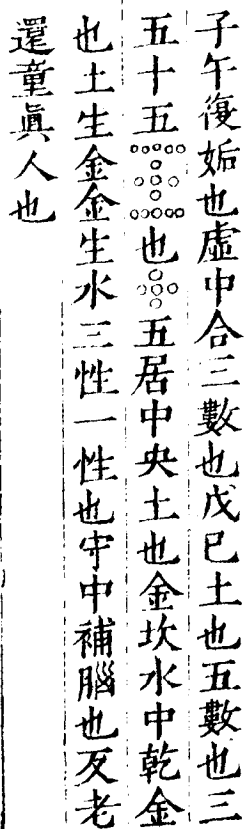 子午復姤也虛中合三數也戊己土也五數也三
五十五也五居中央土也金坎水中乾金
也土生金金生水三性一性也守中補腦也反老
還童眞人也